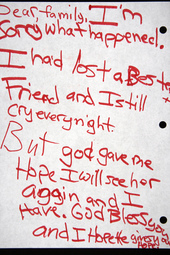 Dear family, I'm
Sorry what happened.
I had lost a Best
Friend and I still
cry every night.
But god gave me
Hope I will see her
aggin and I
Have. God Bless you
and I Hope He gives you